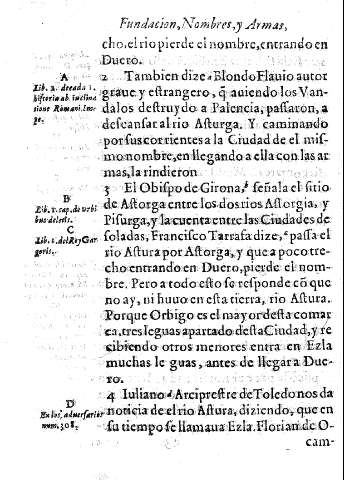 Fundacion, Nombres, y Armas,
cho, el rio pierde el nombre, entrando en
Duero.
2 Tambien dize A Blondo Flauio autor
graue, y estrangero, q̃ auiendo los Van-
dalos destruydo a Palencia, passaron, a
descansar al rio Asturga. Y caminando
por sus corrientes a la Ciudad de el mis-
mo nombre, en llegando a ella con las ar
mas, la rindieron
3 El Obispo de Girona, b señala el sitio
de Astorga entre los dos rios Astorgia, y
Pisurga, y la cuenta entre las Ciudades de
soladas, Francisco Tarrafa dize, c passa el
rio Astura por Astorga, y que a poco tre-
cho entrando en Duero, pierde el nom-
bre. Pero a todo esto se responde cõ que
no ay, ni huuo en esta tierra, rio Astura.
Porque Orbigo es el mayor desta comar
ca, tres leguas apartado desta Ciudad, y re
cibiendo otros menores entra en Ezla
muchas leguas, antes de llegar a Due-
ro.
4 Iuliano d Arcipreste de Toledo nos da
noticia de el rio Astura, diziendo, que en
su tiempo se llamaua Ezla. Florian de O-
cam-
A
Lib. 2. decada 1.
historia ab inclina
tione Romani Im-
pe.
B
Lib. 1. cap. de urbi
bus deletis.
C
Lib. 1. del Rey Gar
goris.
D
En los, aduersarios
num. 308.